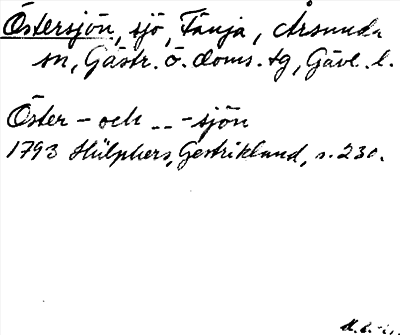 Östersjön, sjö, Fänja, Årsunda
sn, Gästr. ö. doms. tg, Gävl. l.
Öster - och -- - sjön
1793 Hülphers, Gestrikland, s. 230.